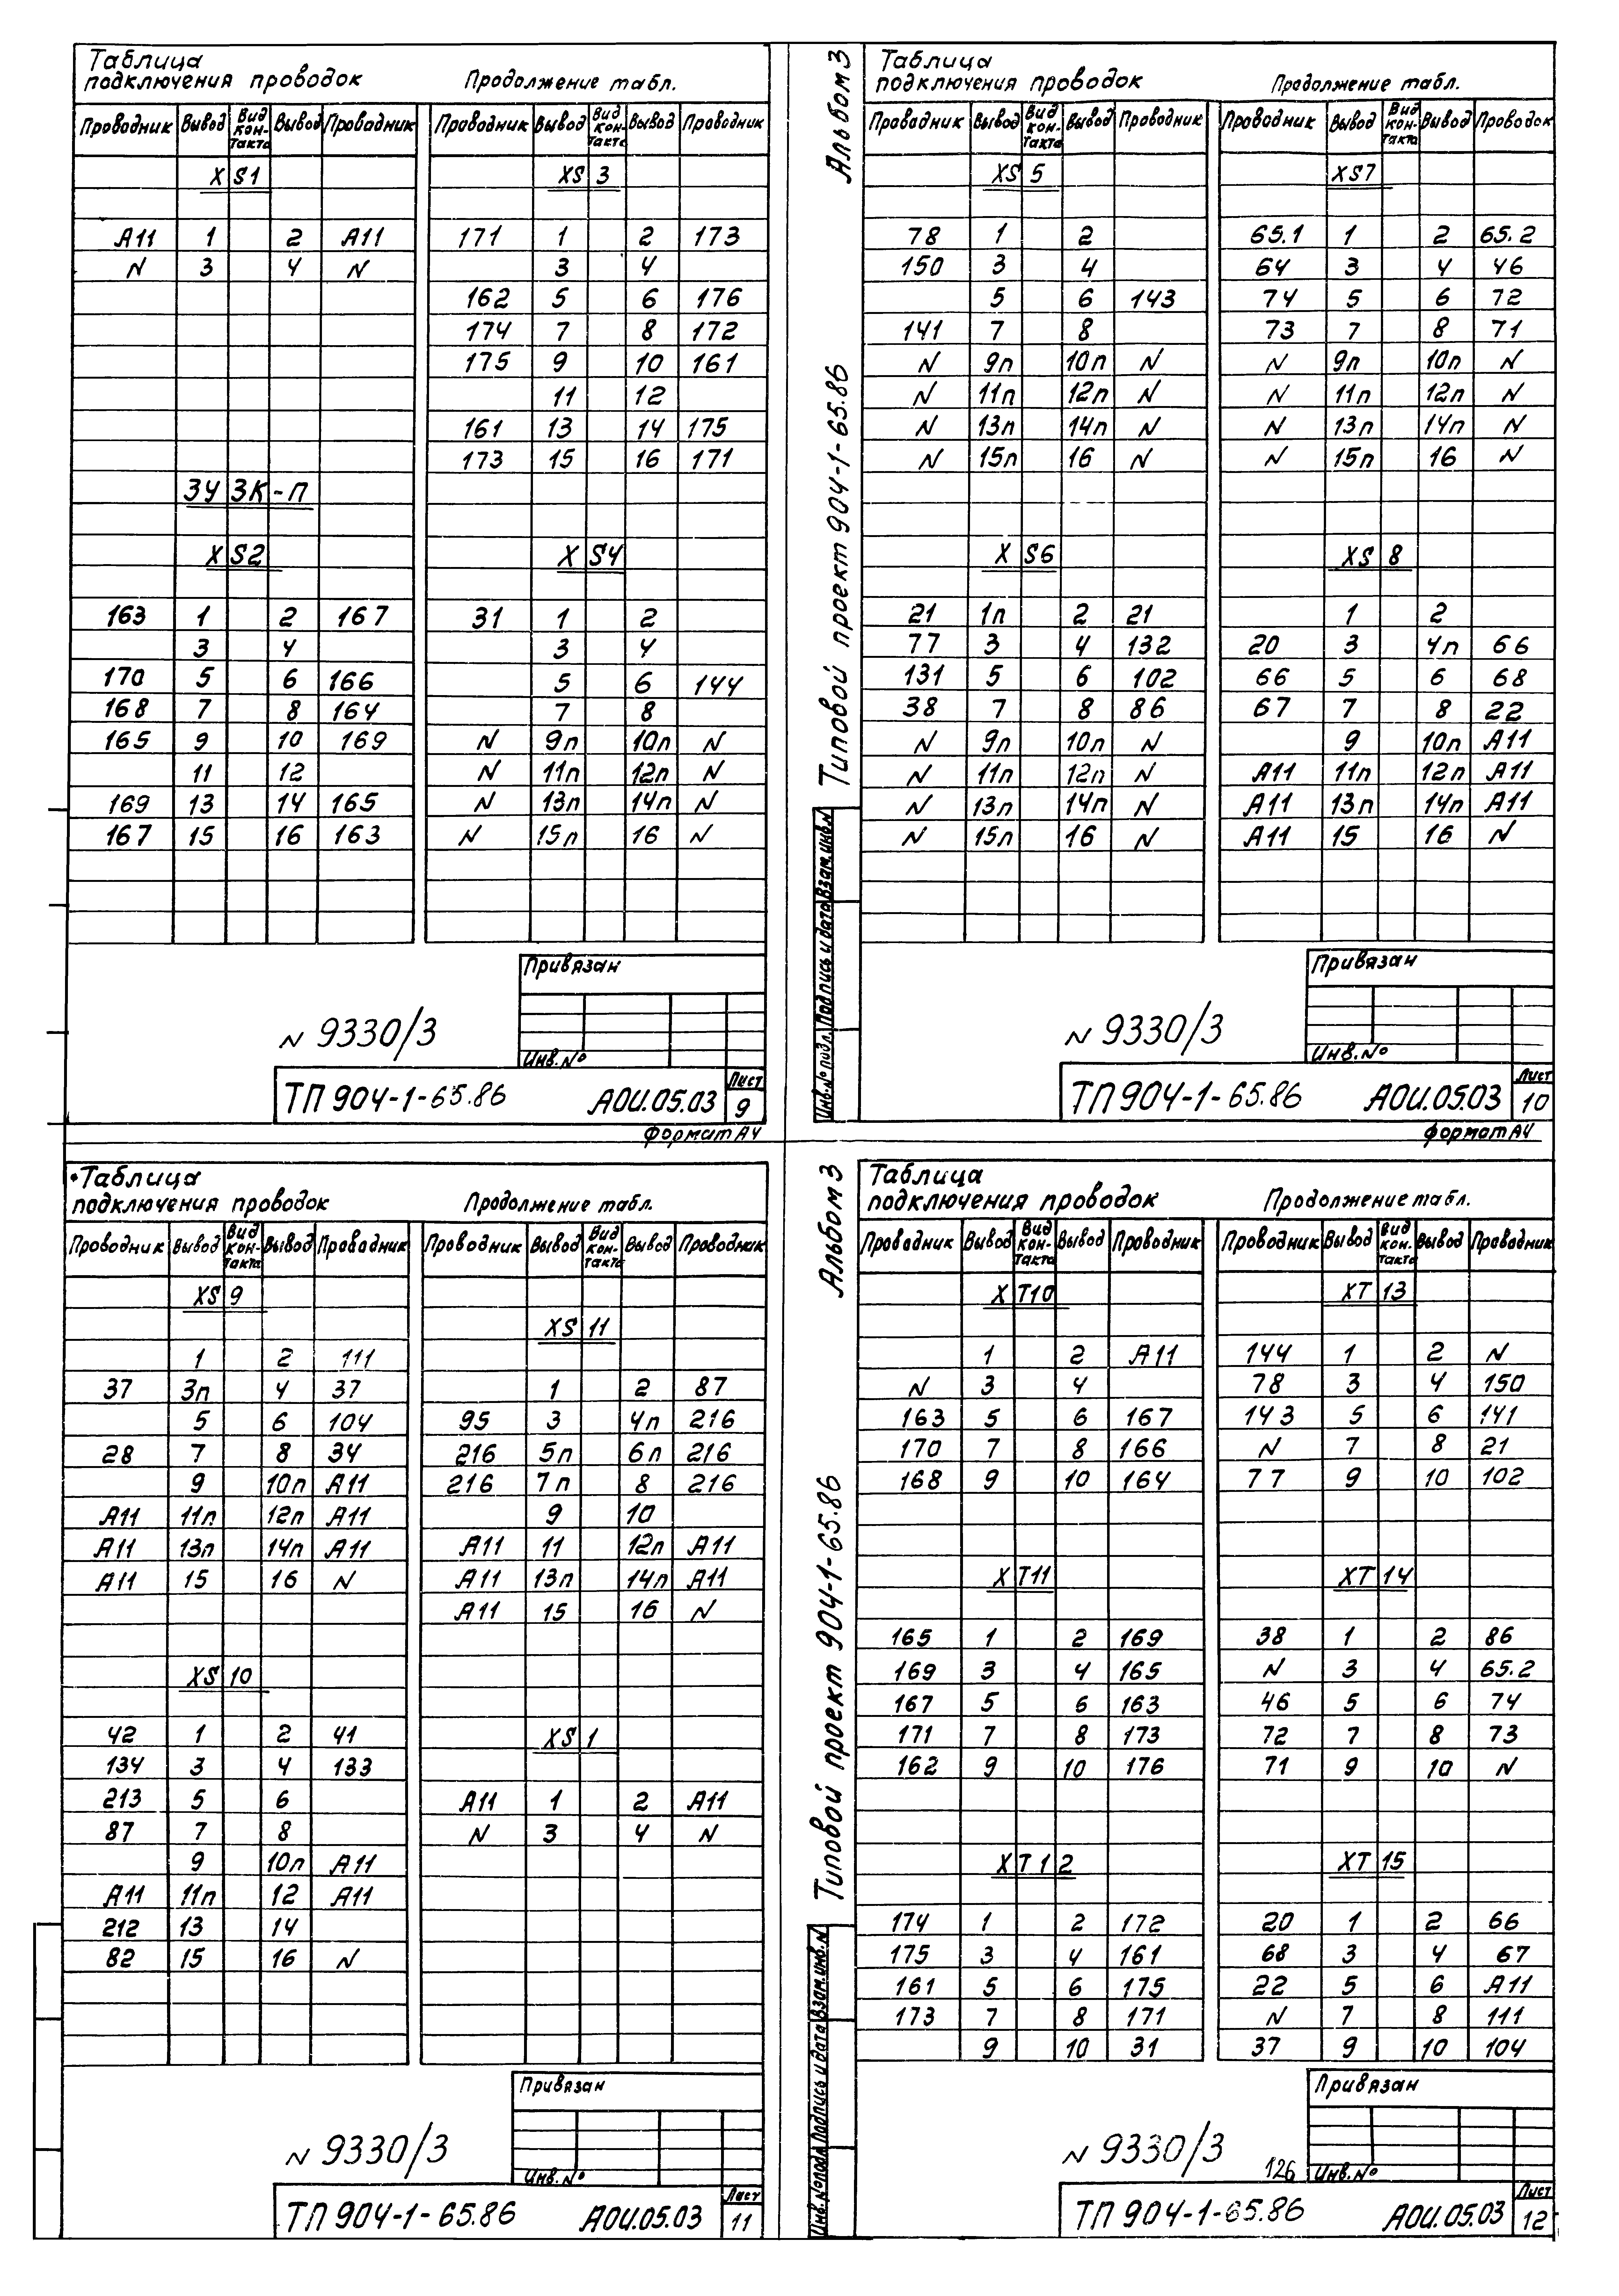 Таблица
подключения проводок
Продолжение табл.
Проводник Вывод Вид контакта Вывод Проводник
XS1
A11 1 2 A11
N 3 4 N
ЗУ ЗК-П
XS2
163 1 2 167
3 4
170 5 6 166
168 7 8 164
165 9 10 169
11 12
169 13 14 165
167 15 16 163
Проводник Вывод Вид контакта Вывод Проводник
XS3
171 1 2 173
3 4
162 5 6 176
174 7 8 172
175 9 10 161
11 12
161 13 14 175
173 15 16 171
XS4
31 1 2
3 4
5 6 144
7 8
N 9п 10п N
N 11п 12п N
N 13п 14п N
N 15п 16 N
Привязан
Инв.№
N 9330/3
ТП 904-1-65.86 АОИ.05.03
Лист
9
Формат А4
Альбом 3
Типовой проект 904-1-65.86
Инв.№ подл. Подпись и дата Взам.инв.N
Таблица
подключения проводок
Продолжение табл.
Проводник Вывод Вид контакта Вывод Проводник
XS5
78 1 2
150 3 4
5 6 143
141 7 8
N 9п 10п N
N 11п 12п N
N 13п 14п N
N 15п 16 N
XS6
21 1п 2 21
77 3 4 132
131 5 6 102
38 7 8 86
N 9п 10п N
N 11п 12п N
N 13п 14п N
N 15п 16 N
Проводник Вывод Вид контакта Вывод Проводок
XS7
65.1 1 2 65.2
64 3 4 46
74 5 6 72
73 7 8 71
N 9п 10п N
N 11п 12п N
N 13п 14п N
N 15п 16 N
XS8
1 2
20 3 4п 66
66 5 6 68
67 7 8 22
9 10п A11
A11 11п 12п A11
A11 13п 14п A11
A11 15 16 N
Привязан
Инв.№
N 9330/3
ТП 904-1-65.86 АОИ.05.03
Лист
10
Формат А4
Таблица
подключения проводок
Продолжение табл.
Проводник Вывод Вид контакта Вывод Проводник
XS9
1 2 111
37 3п 4 37
5 6 104
28 7 8 34
9 10п A11
A11 11п 12п A11
A11 13п 14п A11
A11 15 16 N
XS10
42 1 2 41
134 3 4 133
213 5 6
87 7 8
9 10п A11
A11 11п 12 A11
212 13 14
82 15 16 N
Проводник Вывод Вид контакта Вывод Проводник
XS11
1 2 87
95 3 4п 216
216 5п 6п 216
216 7п 8 216
9 10
A11 11 12п A11
A11 13п 14п A11
A11 15 16 N
XS1
A11 1 2 A11
N 3 4 N
Привязан
Инв.№
N 9330/3
ТП 904-1-65.86 АОИ.05.03
Лист
11
Альбом 3
Типовой проект 904-1-65.86
Инв.№ подл. Подпись и дата Взам.инв.N
Таблица
подключения проводок
Продолжение табл.
Проводник Вывод Вид контакта Вывод Проводник
XT10
1 2 A11
N 3 4
163 5 6 167
170 7 8 166
168 9 10 164
XT11
165 1 2 169
169 3 4 165
167 5 6 163
171 7 8 173
162 9 10 176
XT12
174 1 2 172
175 3 4 161
161 5 6 175
173 7 8 171
9 10 31
Проводник Вывод Вид контакта Вывод Проводник
XT13
144 1 2 N
78 3 4 150
143 5 6 141
N 7 8 21
77 9 10 102
XT14
38 1 2 86
N 3 4 65.2
46 5 6 74
72 7 8 73
71 9 10 N
XT15
20 1 2 66
68 3 4 67
22 5 6 A11
N 7 8 111
37 9 10 104
Привязан
Инв.№
N 9330/3
126
ТП 904-1-65.86 АОИ.05.03
Лист
12